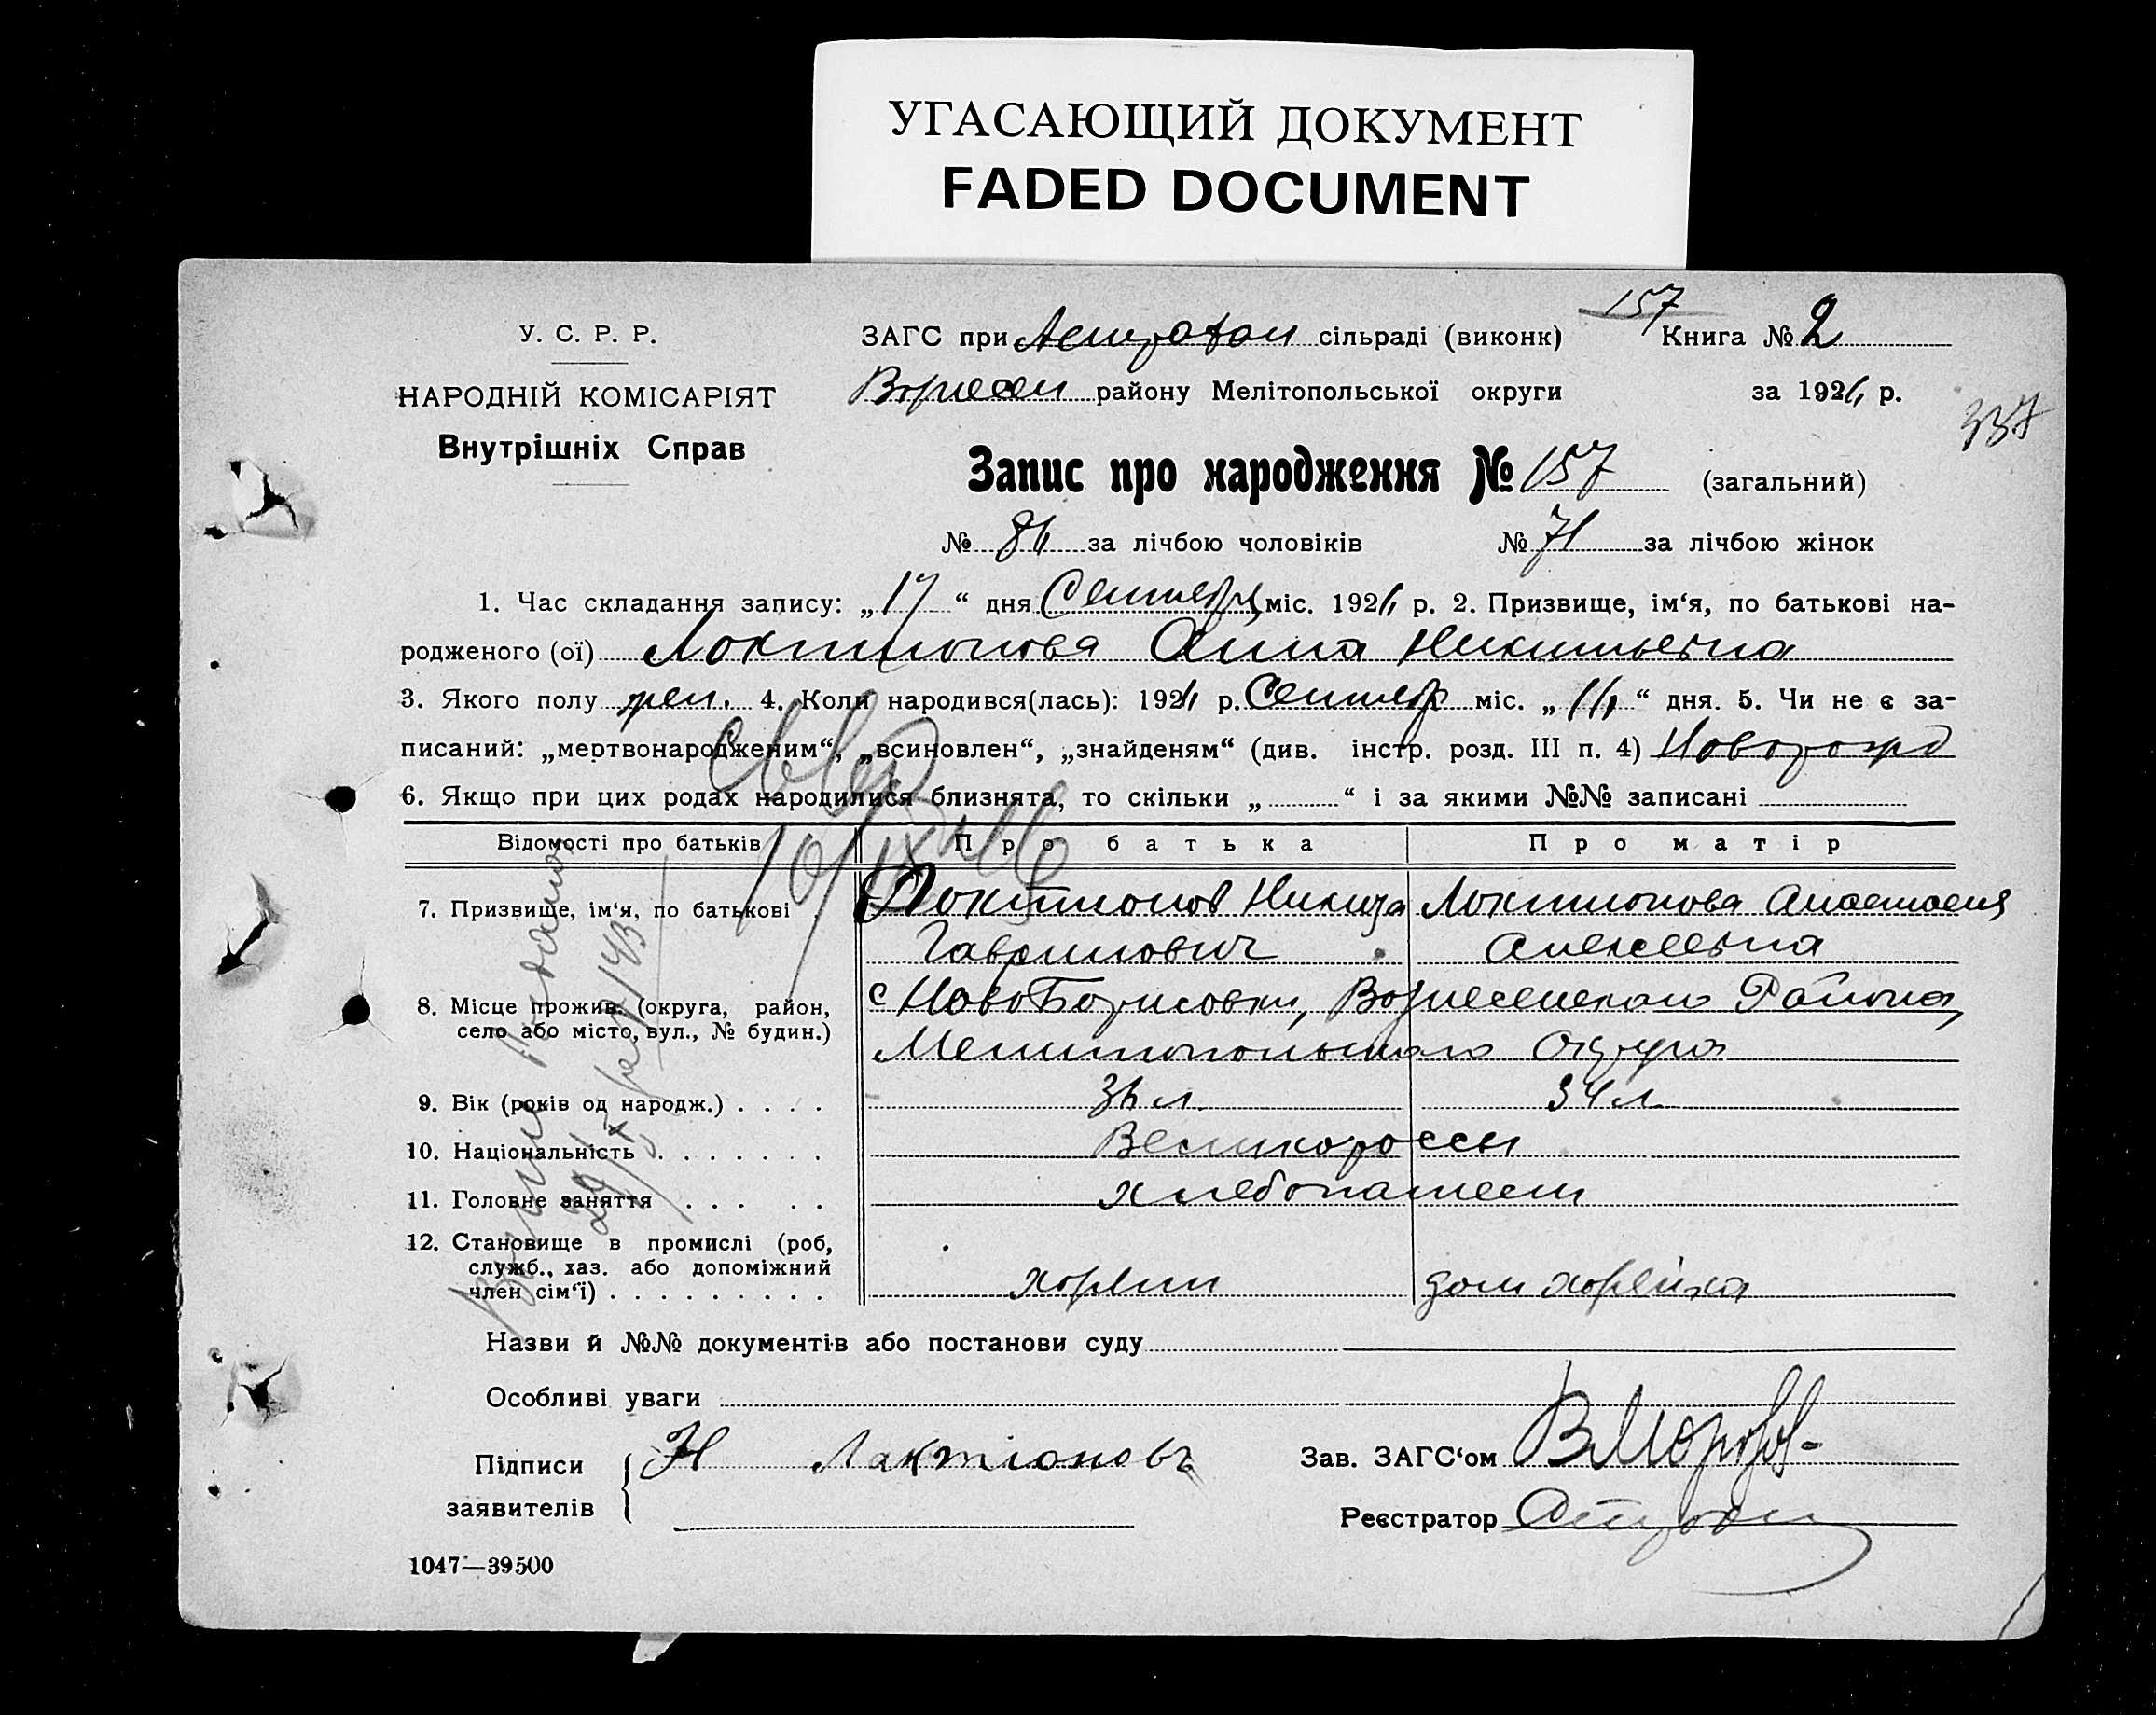 УГАСАЮЩИЙ ДОКУМЕНТ
FADED DOCUMENT
157
У. С. Р. Р.
ЗАГС при Астрахан сільраді (виконк) Книга № 2
НАРОДНІЙ КОМІСАРІЯТ
Внутрішніх Справ
Вознесен району Мелітопольської округи за 1926 р.
337
Запис про народження № 157 (загальний)
№ 86 за лічбою чоловіків № 71 за лічбою жінок
1. Час складання запису: „17“ дня Сентября міс. 1926 р. 2. Призвище, ім‘я, по батькові на-
родженого (ої) Локтионова Анна Никитьевна
3. Якого полу жен. 4. Коли народився(лась): 1926 р. Сентябр міс. „11“ дня. 5. Чи не є за-
писаний: „мертвонародженим“, „всиновлен“, „знайденям“ (див. інстр. розд. III п. 4) Новорожд
6. Якщо при цих родах народилися близнята, то скільки „ “ і за якими №№ записані
Відомості про батьків Про батька Про матір
7. Призвище, ім‘я, по батькові Локтионов Никита Локтионова Анастасия
Гаврилович Алексеевна
8. Місце прожив. (округа, район, с НовоБорисовки, Вознесенского Района,
село або місто, вул., № будин.) Мелитопольского Округа
9. Вік (років од народж.) 36 л. 34 л
10. Національність Великороссы
11. Головне заняття хлебопашеств
12. Становище в промислі (роб,
служб., хаз. або допоміжний
член сім‘ї) хозяин дом хозяйка
Назви й №№ документів або постанови суду
Особливі уваги
Підписи Н Лактіоновъ Зав. ЗАГС‘ом ВМорозов
заявителів
Реєстратор
1047—39500